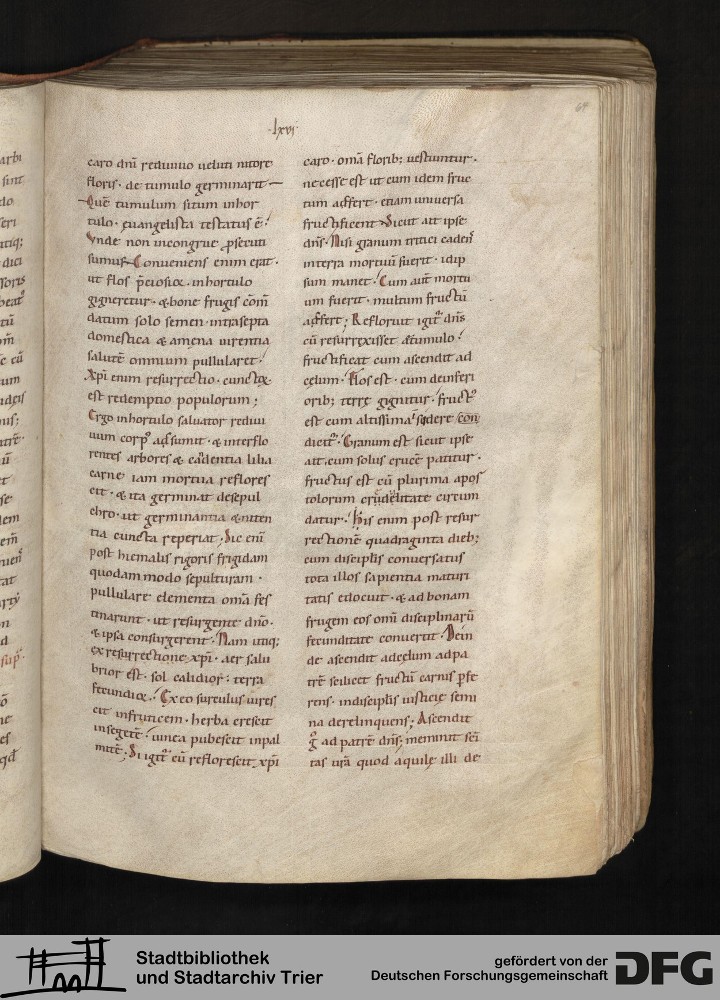 ·lxvi·
64
caro dnī redivivo veluti nitore
floris· de tumulo germinarit
Quē tumulum situm in hor
tulo· ęuangelista testatus ē·
Vnde non incongrue ꝓsecuti
sumus· Conueniens enim erat·
ut flos p̄ciosior· in hortulo
gigneretur· & bone frugis cōm̄
datum solo semen· intra septa
domestica & amena virentia
salutē omnium pullularet·
Xp̄i enim resurrectio· cunctoꝝ
est redemptio populorum;
Ergo in hortulo saluator rediui
uum corp᷒ adsumit· & inter flo
rentes arbores & candentia lilia
carne iam mortua reflores
cit· & ita germinat de sepul
chro· ut germinantia & niten
tia cuncta reperiat· Sic enī
post hiemalis rigoris frigidam
quodam modo sepulturam·
pullulare elementa om̄a fes
tinarunt· ut resurgente dn̄o·
& ipsa consurgerent· Nam utiq;
ex resurrectione xp̄i· aer salu
brior est· sol calidior· terra
fecundior· Ex eo surculus vires
cit in fruticem· herba crescit
in segetē· vinea pubescit in pal
mitē; Si igit᷒ cū reflorescit xp̄i
caro· om̄a florib; uestiuntur·
necesse est ut cum idem fruc
tum adfert· etiam uniuersa
fructificent· Sicut ait ipse
dn̄s· Nisi granum tritici cadens
in terra mortuū fuerit· id ip
sum manet· Cum aut̄ mortu
um fuerit· multum fructū
adfert; Refloruit igit᷒ dn̄s
cū resurrexisset & tumulo·
fructificat cum ascendit ad
cęlum· Flos est· cum de inferi
orib; terrę gignitur· fruct᷒
est cum altissima sede con
dict᷒· Granum est sicut ipse
ait· cum solus crucē patitur·
fructus est cū plurima apos
tolorum crudelitate circum
datur· His enim post resur
rectionē quadraginta dieb;
cum discipulis conuersatus
tota illos sapientia maturi
tatis edocuit· & ad bonam
frugem eos omī disciplinarū
fecunditate conuertit· Dein
de ascendit ad cęlum ad pa
trē scilicet fructū carnis ꝓfe
rens· in discipulis iusticię semi
na derelinquens; Ascendit
g̊ ad patrē dn̄s; meminit sc̄i
tas vr̄a quod aquilę illi de
Stadtbibliothek
und Stadtarchiv Trier
gefördert von der
Deutschen Forschungsgemeinschaft
DFG